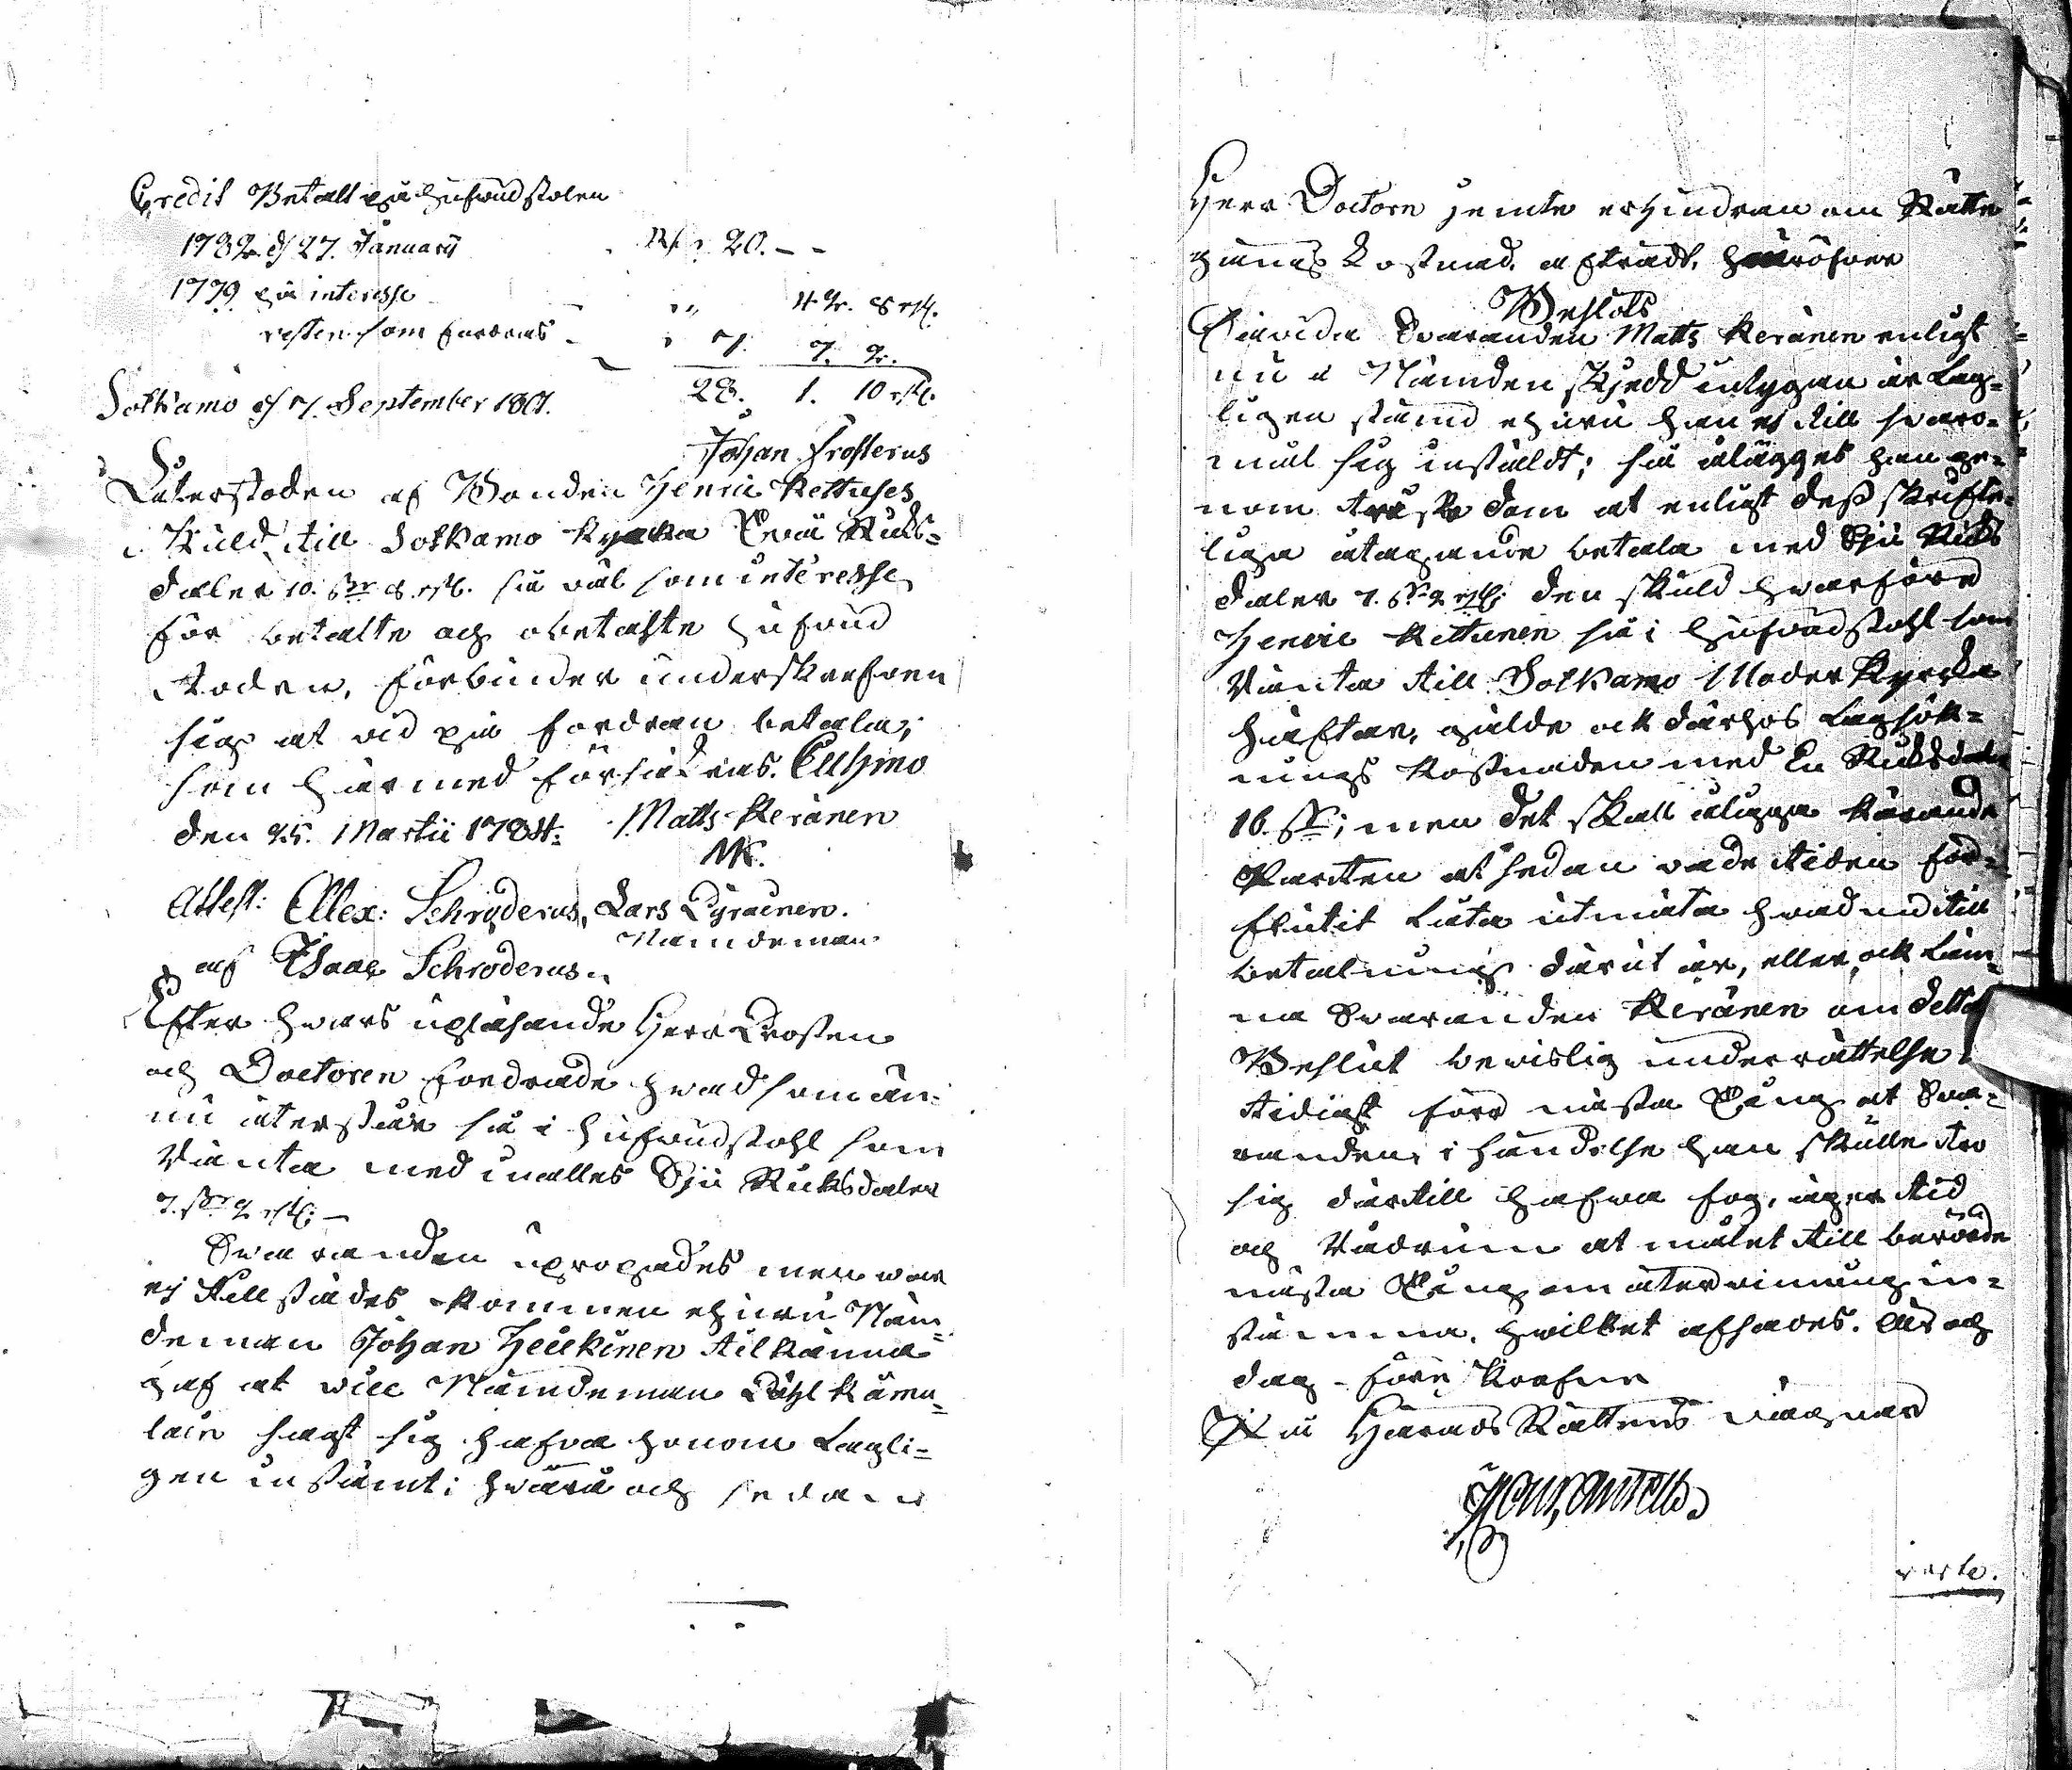 Credit Betalt på hufvudstolen
1782 d 27. Januarii Rd 20. - -
1779 på interesse " 4 sk. 8 rst.
resten som fordras " 7. 7. 2.
Sotkamo d 7. September 1801. 28. 1. 10 rst.
Johan Frosterus
Återstoden af Bonden Henric Kettuses
skuld till Sotkamo kyrka Tvu Riks=
daler 10. sk. 8 rst. så väl som interesse
för betalte och obetalte hufvud
stoden, förbinder underskrefven
sig at vid på fordran betala;
som härmed försäkras. Cuhmo
den 25. Martii 1784. Matts Keränen
MK.
Attest: Alex: Schroderus, Lars Pyrainen.
Nämdeman
af Isaac Schroderus.
Efter hvars upläsande Herr Prosten
och Doctoren fordrade hvad som än=
nu återstår så i hufvudstohl som
Ränta med inalles Sju Riksdaler
7. sk. 2 rst. -
Svaranden upropades men war
ej tillstädes kommen ehuru Näm=
deman Johan Heickinen tilkänna
gaf at wice Nämdeman Påhl Käma=
läin sagt sig hafva honom Lagli=
gen instämt; hvaruå och sedan
Herr Doctorn jemte erhindran om Rätte
gångs Kostnad. afträdt. häröfver
Beslöts
Såvida Svaranden Matts Keränen enligt
nu i Nämden skjedd intygan är Lag=
ligen stämd ehuru han ej till svaro=
mål sig instäldt; så ålägges han ge=
nom tresko dom at enligt deß skrifte=
liga åtagande betala med Sju Riks
daler 7. sk. 2 rst. den skuld hvarföre
Henric Kettunen så i hufvudstohl som
Ränta till Sotkamo Moder Kyrcka
häftar, gulde ock därhos Lagsök=
nings kostnaden med En Riksdaler
16. sk; men det skall åligga kärande
Parten at sedan vade tiden för=
flutit Låta utmäta hvad nu till
betalning därut är, eller ock Läm=
na Svaranden Keränen om detta
Beslut bevislig underrättelse
tidigt förr nästa Ting at Sva=
randen, i händelse han skulle tro
sig därtill hafva fog, äger tid
och Rådrum at målet till berörde
nästa Ting om återvinning in=
stämma. hvilket afsades. År och
dag - förr skrefne
På Härads Rättens vägnar
verte.